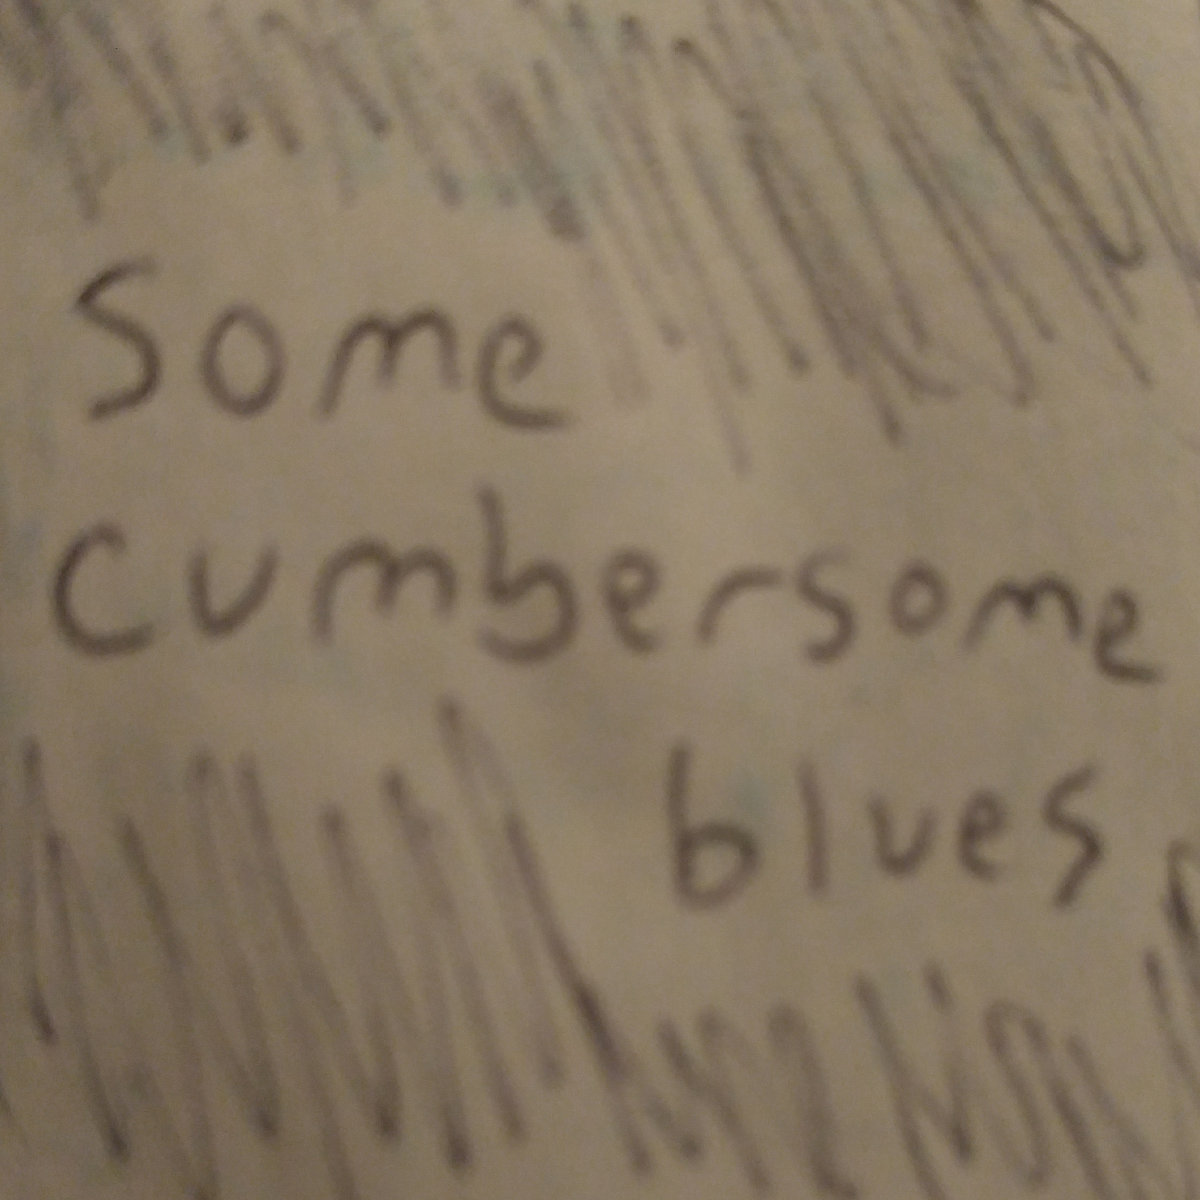 Some
cumbersome
blues